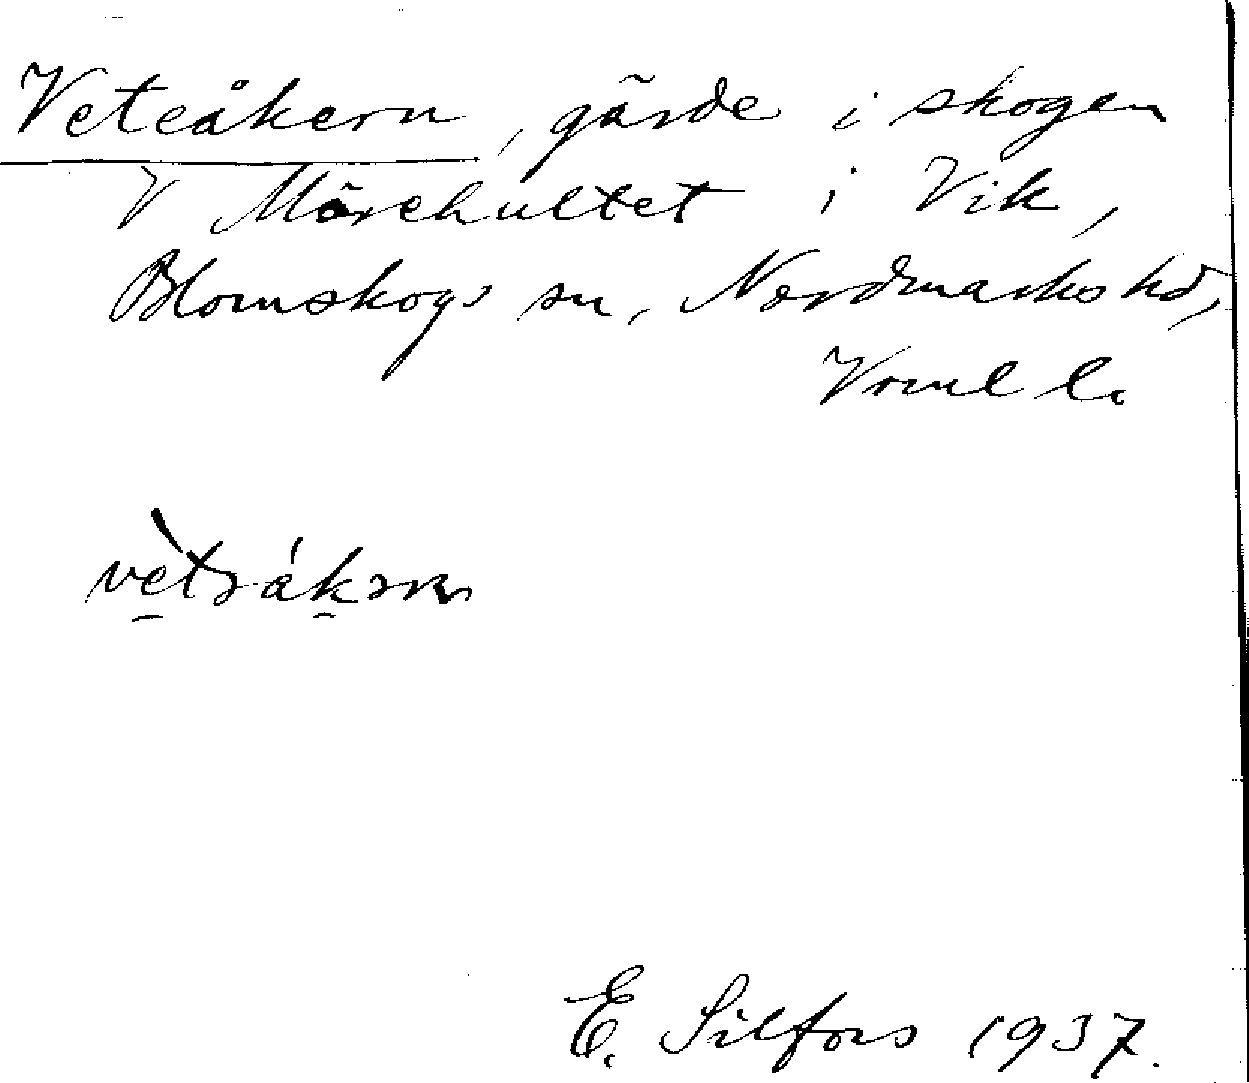 Veteåkern, gärde i skogen
V Mörehultet i Vik,
Blomskogs sn, Nordmarks hd,
Vrml l.
E. Silfors 1937.